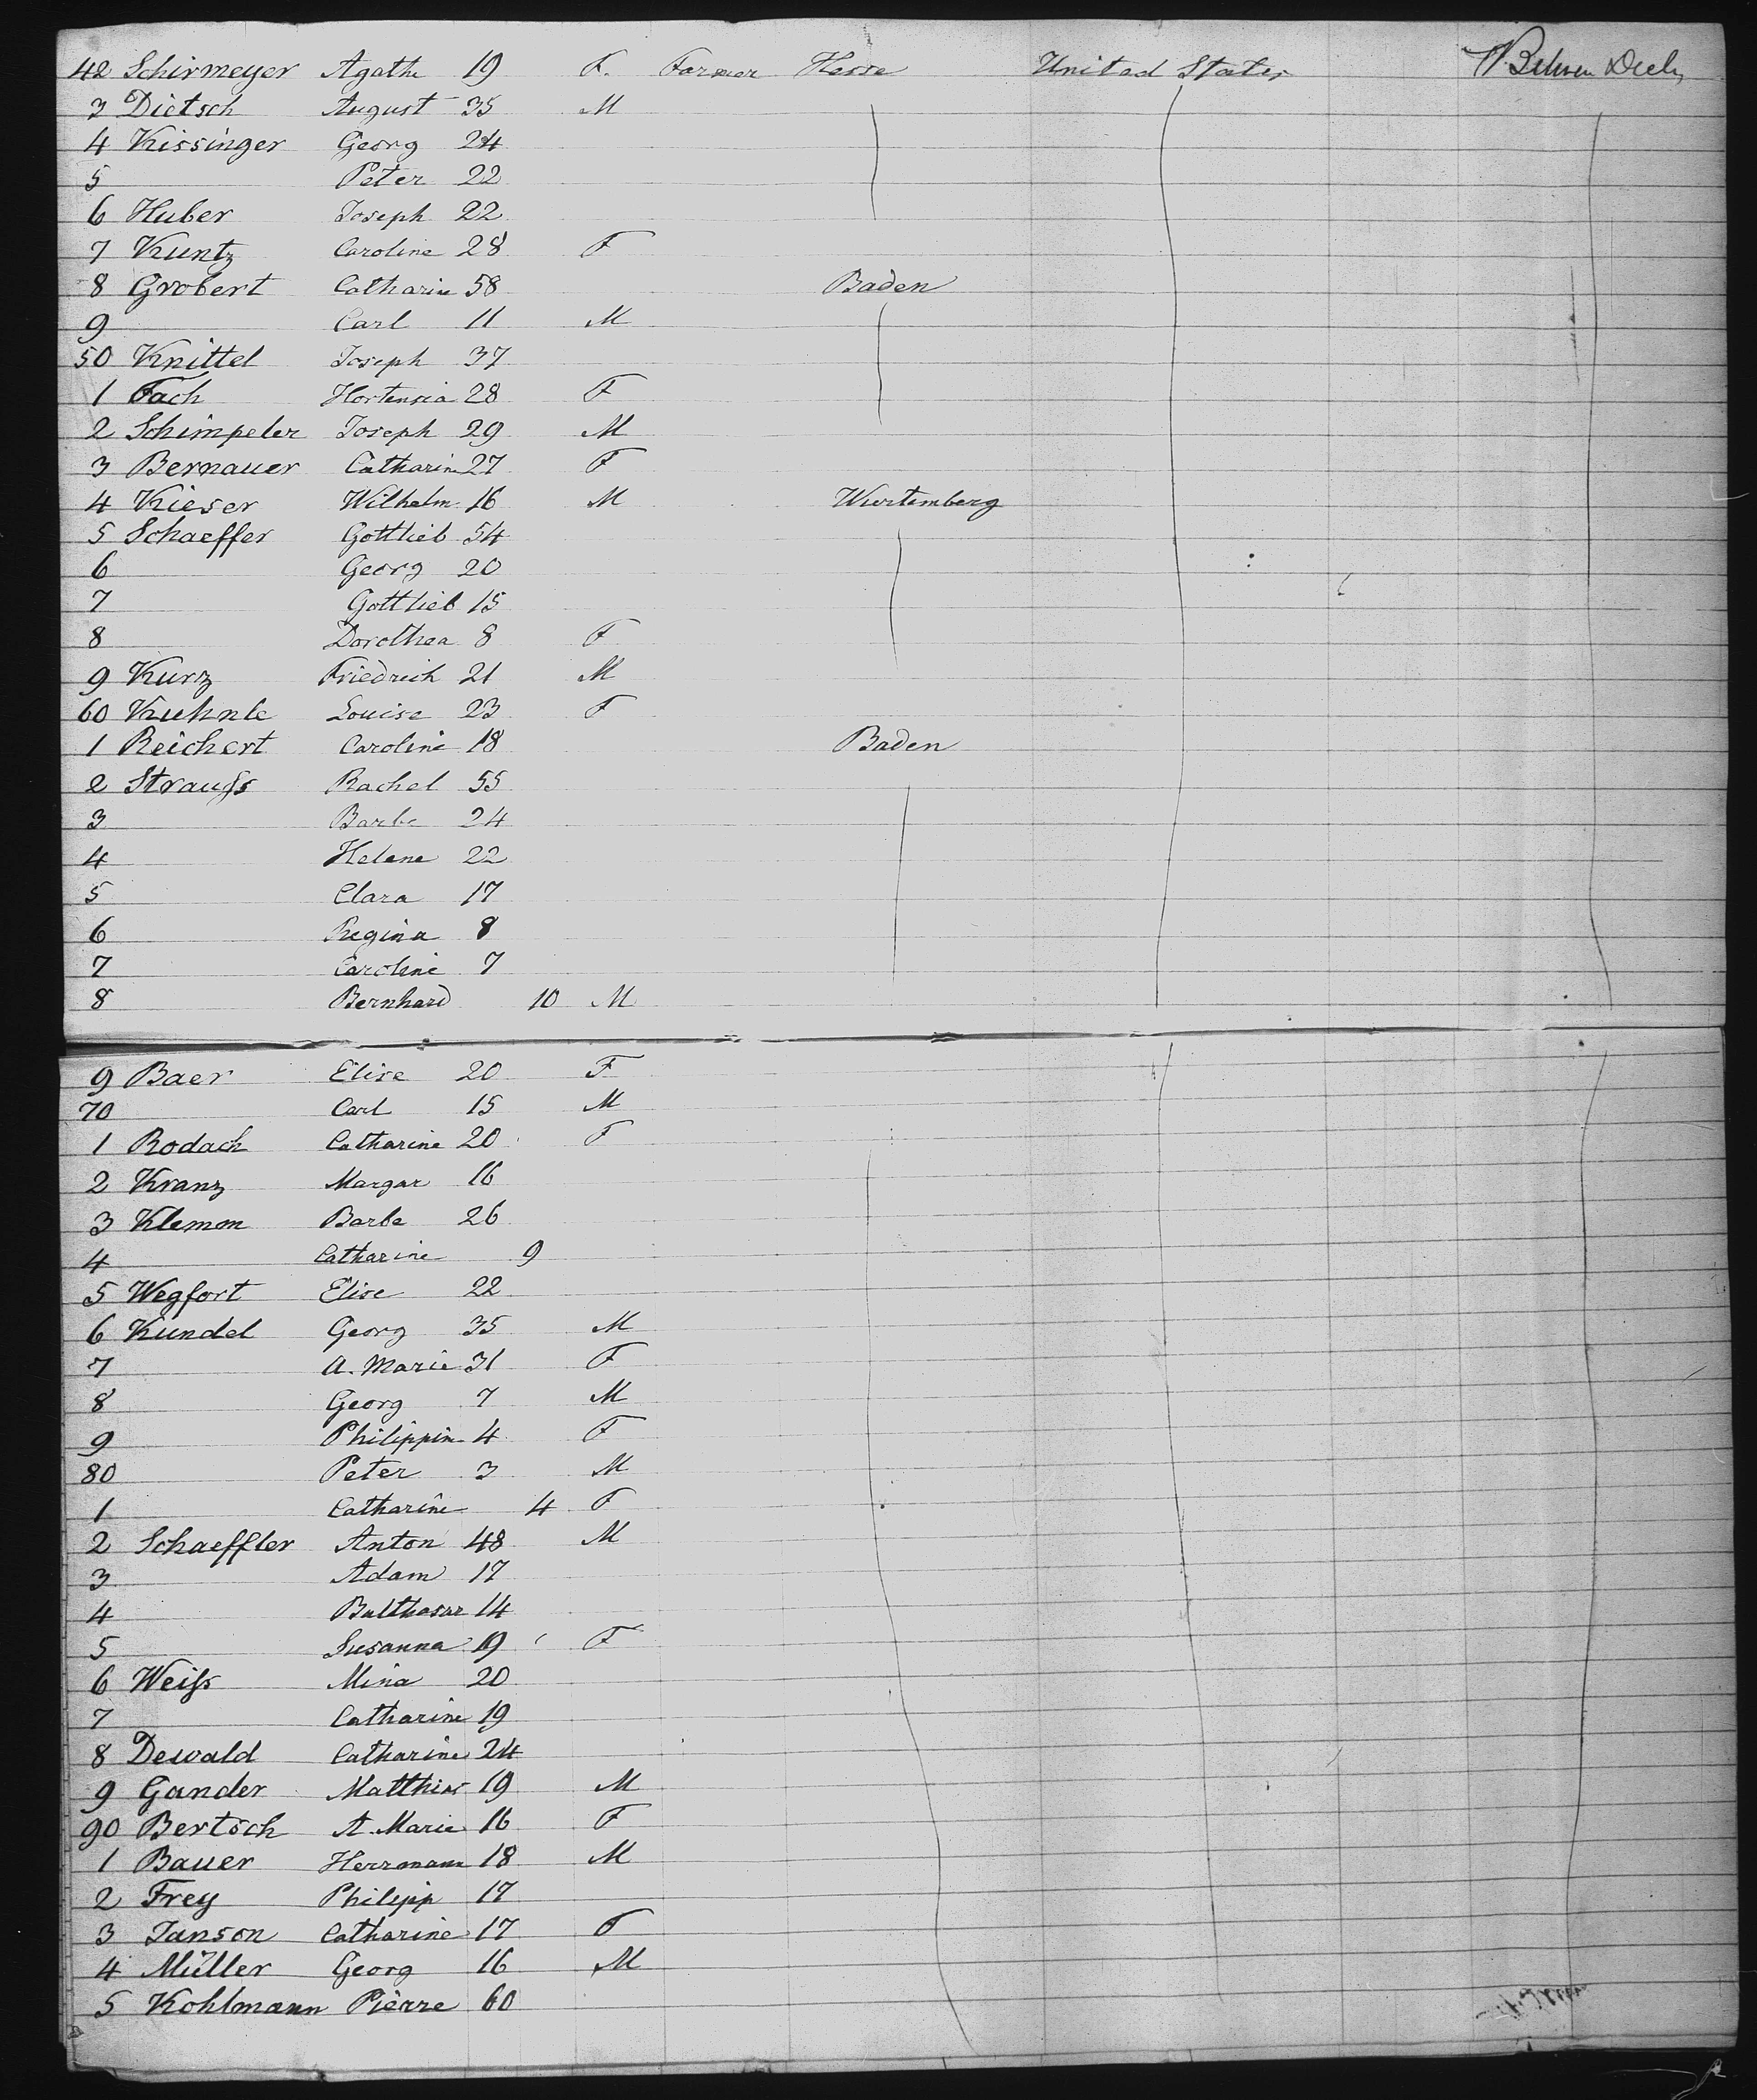 42 Schirmeyer Agathe 19 F. Farmer Hesse United States Between Decks
3 Dietsch August 35 M
4 Kissinger Georg 24
5 Peter 22
6 Huber Joseph 22
7 Kuntz Caroline 28 F
8 Grobert Catharin 58 Baden
9 Carl 11 M
50 Knittel Joseph 37
1 Fach Hortensia 28 F
2 Schimpeler Joseph 29 M
3 Bernauer Catharin 27 F
4 Kieser Wilhelm 16 M Wurtemberg
5 Schaeffer Gottlieb 54
6 Georg 20
7 Gottlieb 15
8 Dorothea 8 F
9 Kurz Friedrich 21 M
60 Kuhnle Louise 23 F
1 Reichert Caroline 18 Baden
2 Strauss Rachel 55
3 Barbe 24
4 Helene 22
5 Clara 17
6 Regina 8
7 Caroline 7
8 Bernhard 10 M
9 Baer Elise 20 F
70 Carl 15 M
1 Rodach Catharine 20 F
2 Kranz Margar 16
3 Klemon Barbe 26
4 Catharine 9
5 Wegfort Elise 22
6 Kundel Georg 35 M
7 A. Marie 31 F
8 Georg 7 M
9 Philippin 4 F
80 Peter 3 M
1 Catharine 4 F
2 Schaeffler Anton 48 M
3 Adam 17
4 Balthasar 14
5 Susanna 19 F
6 Weiss Mina 20
7 Catharine 19
8 Dewald Catharine 24
9 Gander Matthias 19 M
90 Bertsch A. Marie 16 F
1 Bauer Herrmann 18 M
2 Frey Philipp 17
3 Janson Catharine 17 F
4 Müller Georg 16 M
5 Kohlmann Pierre 60